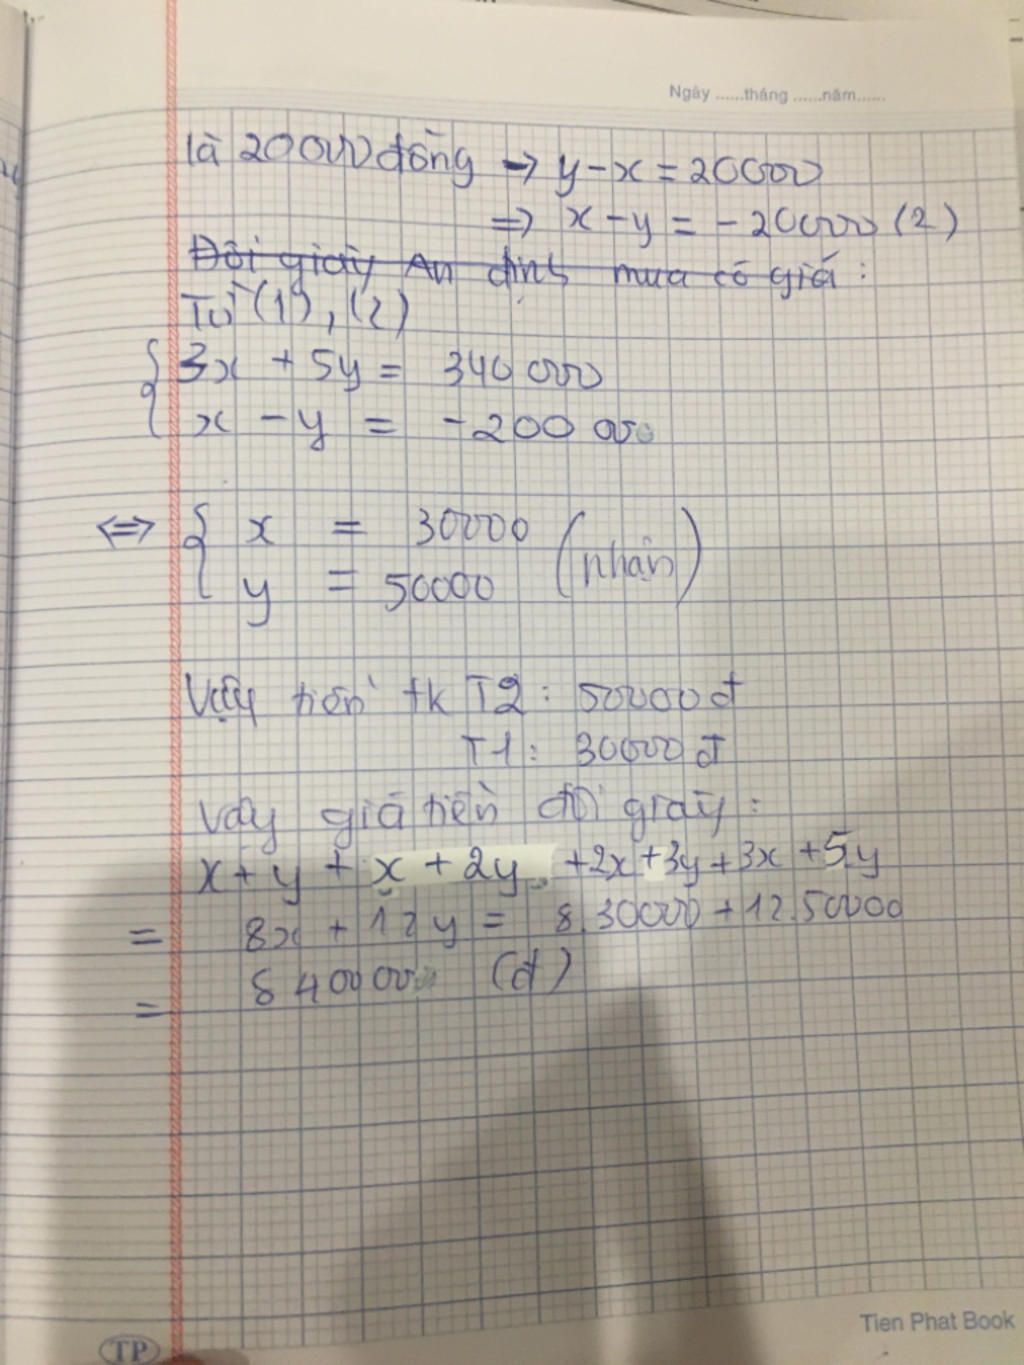 Ngày ......tháng ......năm......
là 20000 đồng → y - x = 20000
⇒ x - y = -20000 (2)
Đôi giày An định mua có giá :
Từ (1), (2)
{ 3x + 5y = 340 000
x - y = -200 000
⇔ { x = 30000 (nhận)
y = 50000
Vậy tiền tk T2 : 50000 đ
T1 : 30000 đ
Vậy giá tiền đôi giày :
x + y + x + 2y + 2x + 3y + 3x + 5y
= 8x + 12y = 8.30000 + 12.50000
= 8400000 (đ)
Tien Phat Book
TP